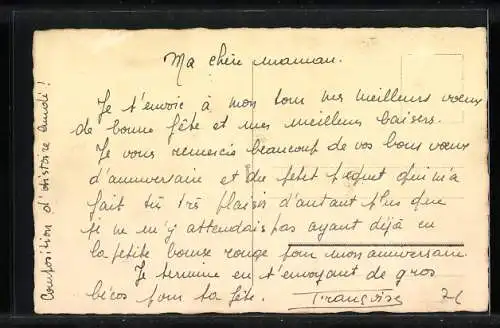 Ma chère maman.
Je t'envoie à mon tour mes meilleurs vœux
de bonne fête et mes meilleurs baisers.
Je vous remercie beaucoup de vos bons vœux
d'anniversaire et du petit paquet qui m'a
fait très plaisir d'autant plus que
je ne m'y attendais pas ayant déjà eu
la petite bourse rouge pour mon anniversaire.
Je termine en t'envoyant de gros
bécos pour ta fête. Françoise
Composition d'histoire lundi!